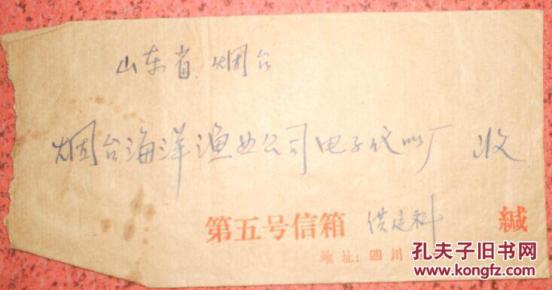 山东省 烟台
烟台海洋渔业公司电子仪器厂 收
第五号信箱 供运科 缄
地址:四川
孔夫子旧书网
KONGFZ.COM